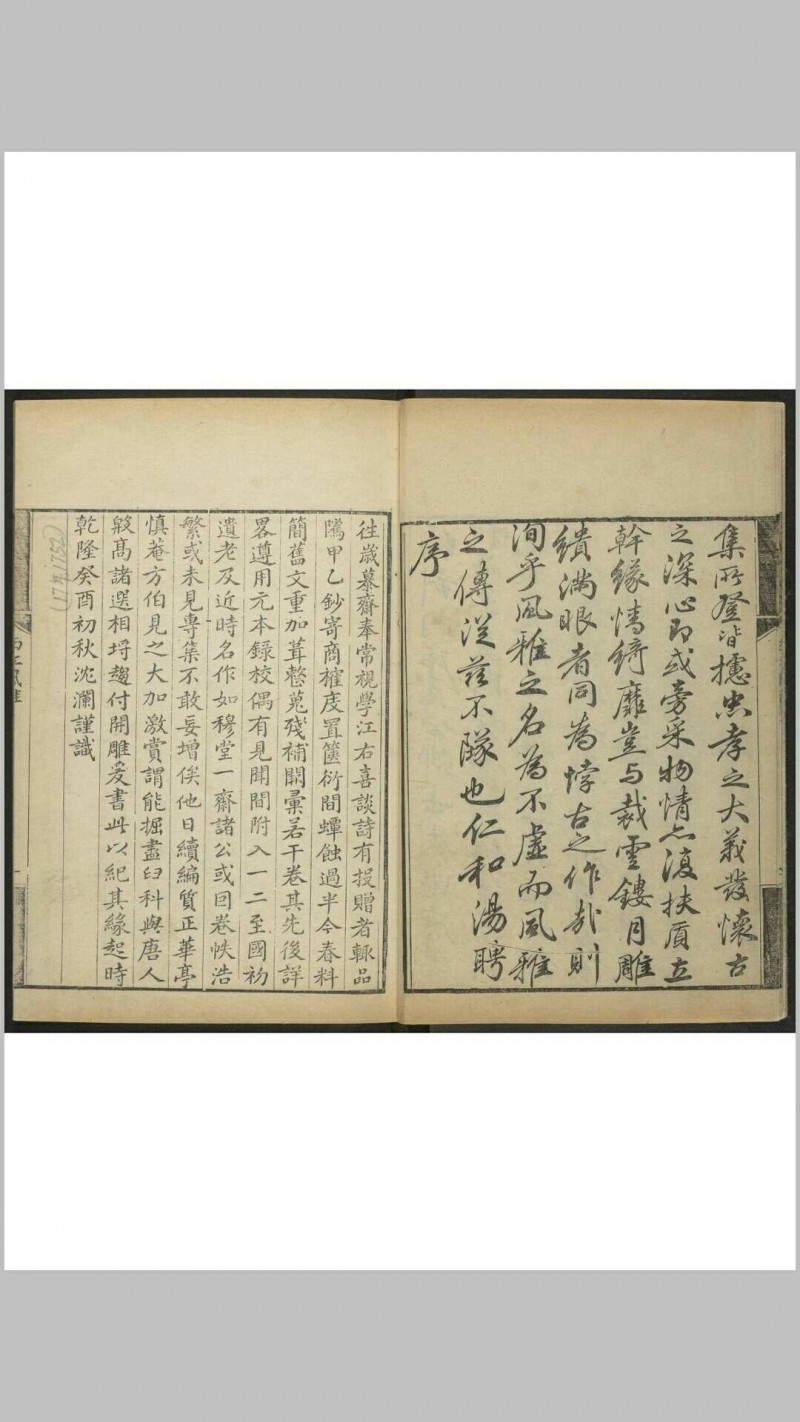 集所登皆攄忠孝之大義發懷古
之深心即或旁采物情亦復扶質立
幹緣情綺靡豈与裁雲鏤月雕
繢滿眼者同為悖古之作哉則
洵乎風雅之名為不虛而風雅
之傳從茲不隊也仁和湯聘
序
往歲慕齋奉常視學江右喜談詩有投贈者輒品
隲甲乙鈔寄商榷庋置篋衍間蟫蝕過半今春料
簡舊文重加葺整蒐殘補闕彙若干卷其先後詳
畧遵用元本錄校偶有見聞間附入一二至國初
遺老及近時名作如穆堂一齋諸公或因卷帙浩
繁或未見專集不敢妄增俟他日續編質正華亭
慎菴方伯見之大加激賞謂能掘盡臼科與唐人
殷高諸選相埒趣付開雕爰書此以紀其緣起時
乾隆癸酉初秋沈瀾謹識